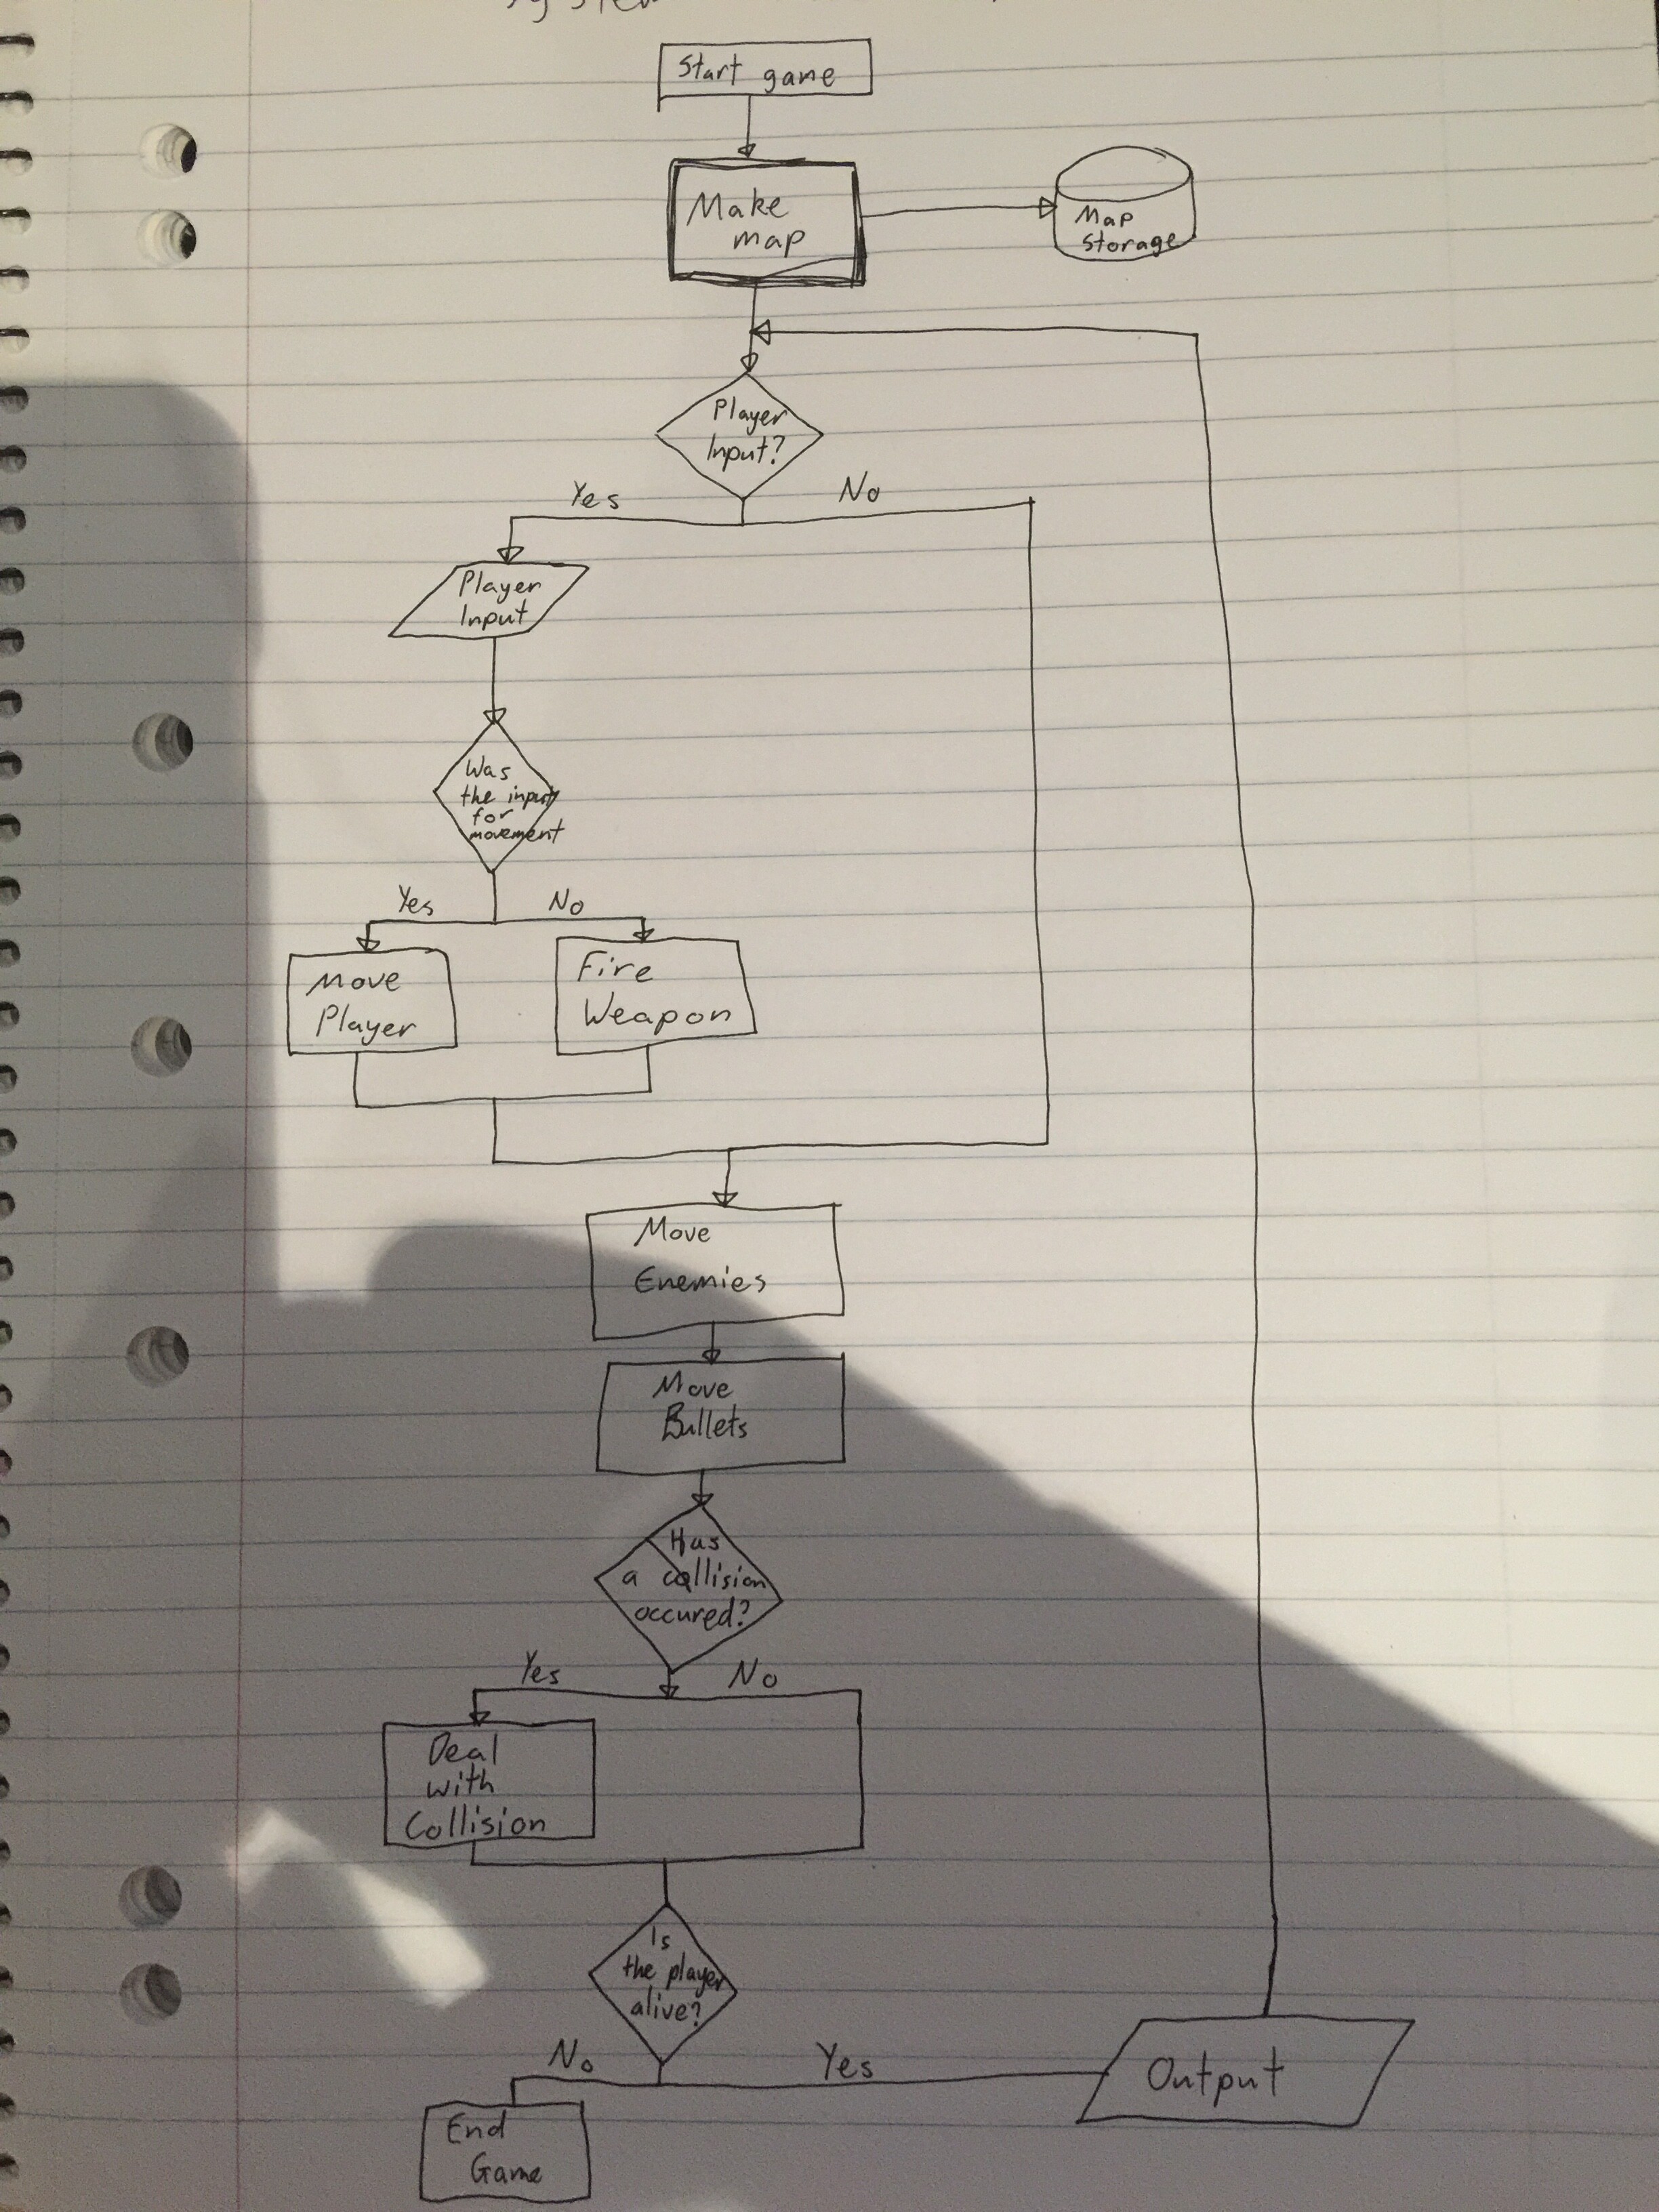 System
Start game
Make
map
Map
Storage
Player
Input?
Yes
No
Player
Input
Was
the input
for
movement
Yes
No
Move
Player
Fire
Weapon
Move
Enemies
Move
Bullets
Has
a collision
occured?
Yes
No
Deal
with
Collision
Is
the player
alive?
No
Yes
Output
End
Game